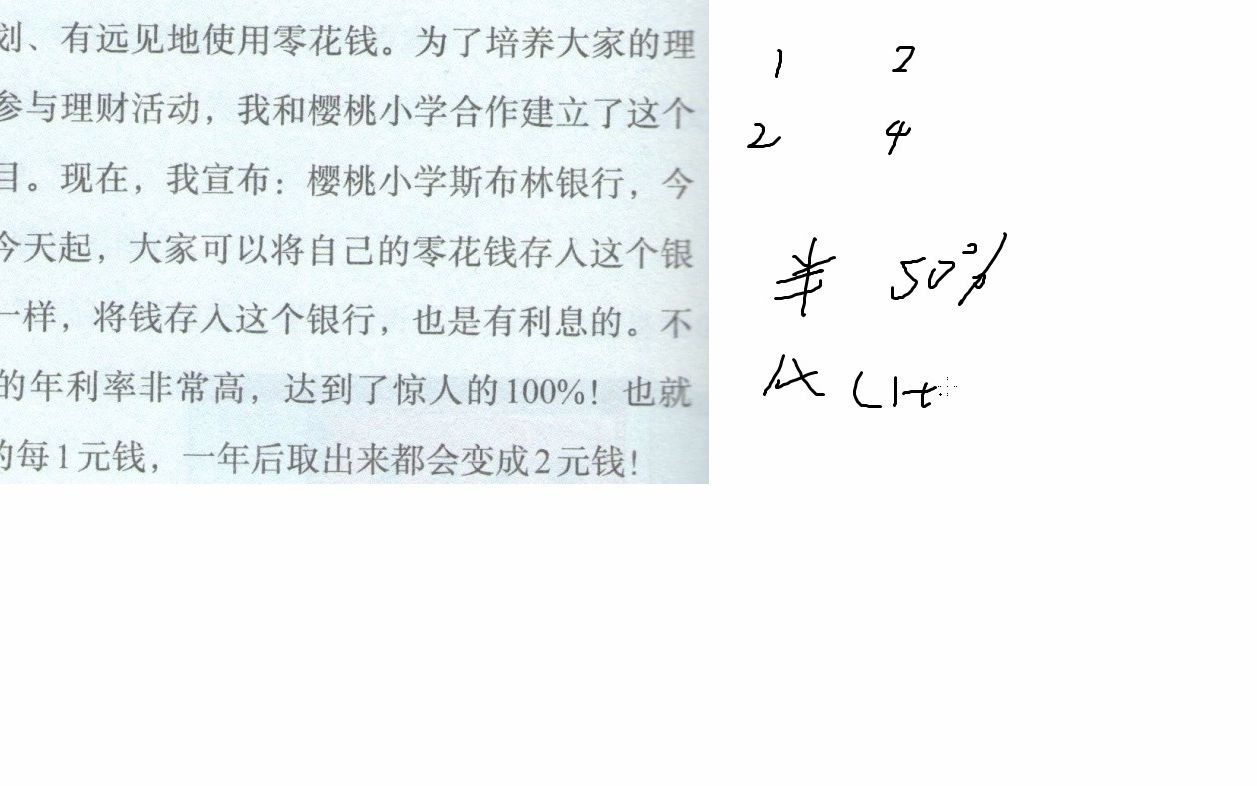 划、有远见地使用零花钱。为了培养大家的理
参与理财活动，我和樱桃小学合作建立了这个
目。现在，我宣布：樱桃小学斯布林银行，今
今天起，大家可以将自己的零花钱存入这个银
一样，将钱存入这个银行，也是有利息的。不
的年利率非常高，达到了惊人的100%！也就
的每1元钱，一年后取出来都会变成2元钱！
1 2
2 4
半 50%
1x (1+